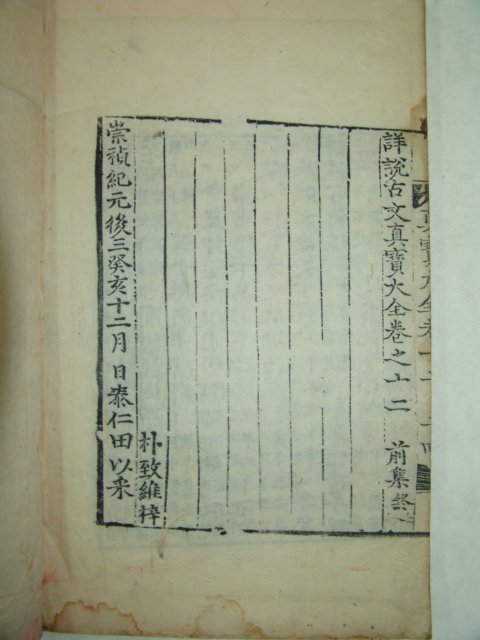 詳說古文真寶大全卷之十二 前集終
崇禎紀元後三癸亥十二月 日泰仁田以采
朴致維梓